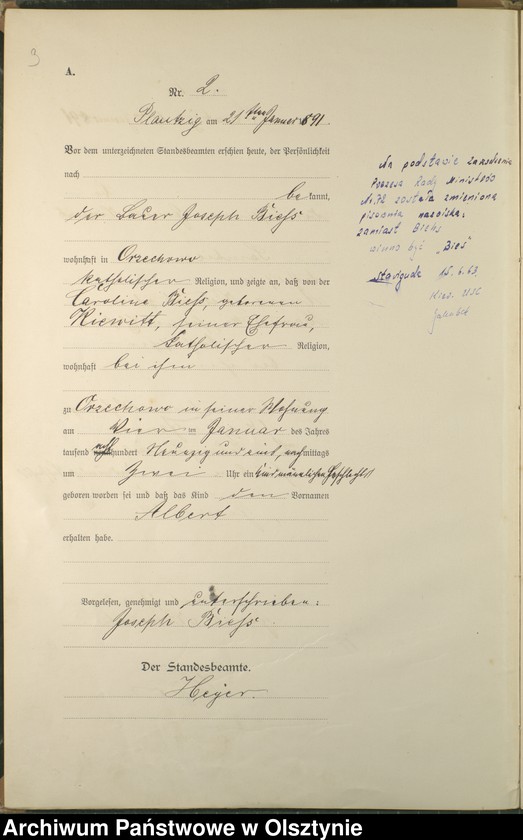 3
A.
Nr. 2.
Plautzig am 21ten Januar 1891.
Vor dem unterzeichneten Standesbeamten erschien heute, der Persönlichkeit
nach
bekannt,
der Joseph Biehs
wohnhaft in Orzechowo
katholischer Religion, und zeigte an, daß von der
Caroline Biehs, geborenen
Kiewitt, seiner Ehefrau,
katholischer Religion,
wohnhaft bei ihm
zu Orzechowo in seiner Wohnung
am Vier ten Januar des Jahres
tausend acht hundert Neunzig und eins, nachmittags
um Zwei Uhr ein Kind männlichen Geschlechts
geboren worden sei und daß das Kind den Vornamen
Albert
erhalten habe.
Vorgelesen, genehmigt und unterschrieben:
Joseph Biehs
Der Standesbeamte.
Heyer.
Na podstawie
Prezesa Rady Ministrów
Nr. 72 została zmieniona
pisownia nazwiska:
zamiast Biehs
winno być "Bies"
Stawiguda 15.6.63
Kier. USC
Archiwum Państwowe w Olsztynie